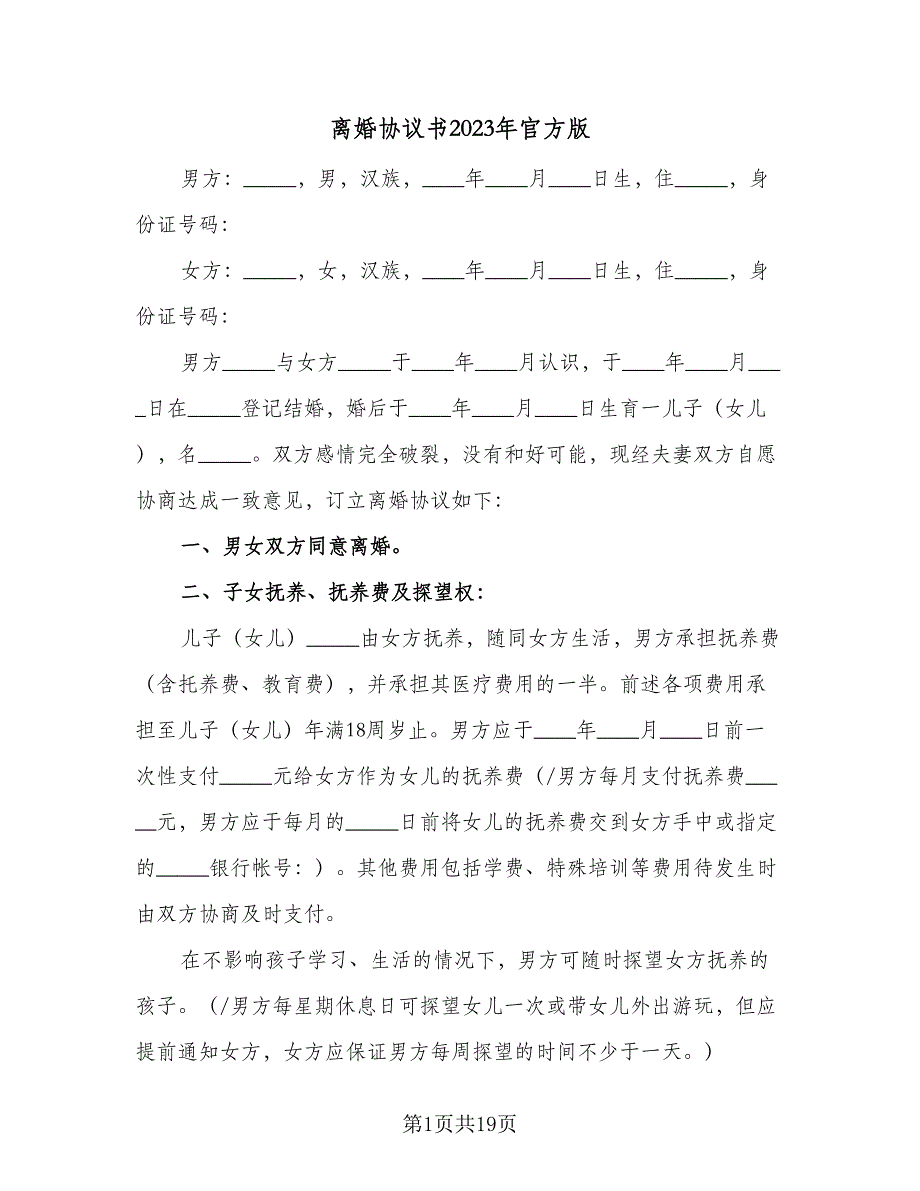 离婚协议书2023年官方版
男方：_____，男，汉族，____年____月____日生，住_____，身
份证号码：
女方：_____，女，汉族，____年____月____日生，住_____，身
份证号码：
男方_____与女方_____于____年____月认识，于____年____月___
_日在_____登记结婚，婚后于____年____月____日生育一儿子（女儿
），名_____。双方感情完全破裂，没有和好可能，现经夫妻双方自愿
协商达成一致意见，订立离婚协议如下：
一、男女双方同意离婚。
二、子女抚养、抚养费及探望权：
儿子（女儿）_____由女方抚养，随同女方生活，男方承担抚养费
（含托养费、教育费），并承担其医疗费用的一半。前述各项费用承
担至儿子（女儿）年满18周岁止。男方应于____年____月____日前一
次性支付_____元给女方作为女儿的抚养费（/男方每月支付抚养费___
__元，男方应于每月的_____日前将女儿的抚养费交到女方手中或指定
的_____银行帐号：）。其他费用包括学费、特殊培训等费用待发生时
由双方协商及时支付。
在不影响孩子学习、生活的情况下，男方可随时探望女方抚养的
孩子。（/男方每星期休息日可探望女儿一次或带女儿外出游玩，但应
提前通知女方，女方应保证男方每周探望的时间不少于一天。）
第1页共19页